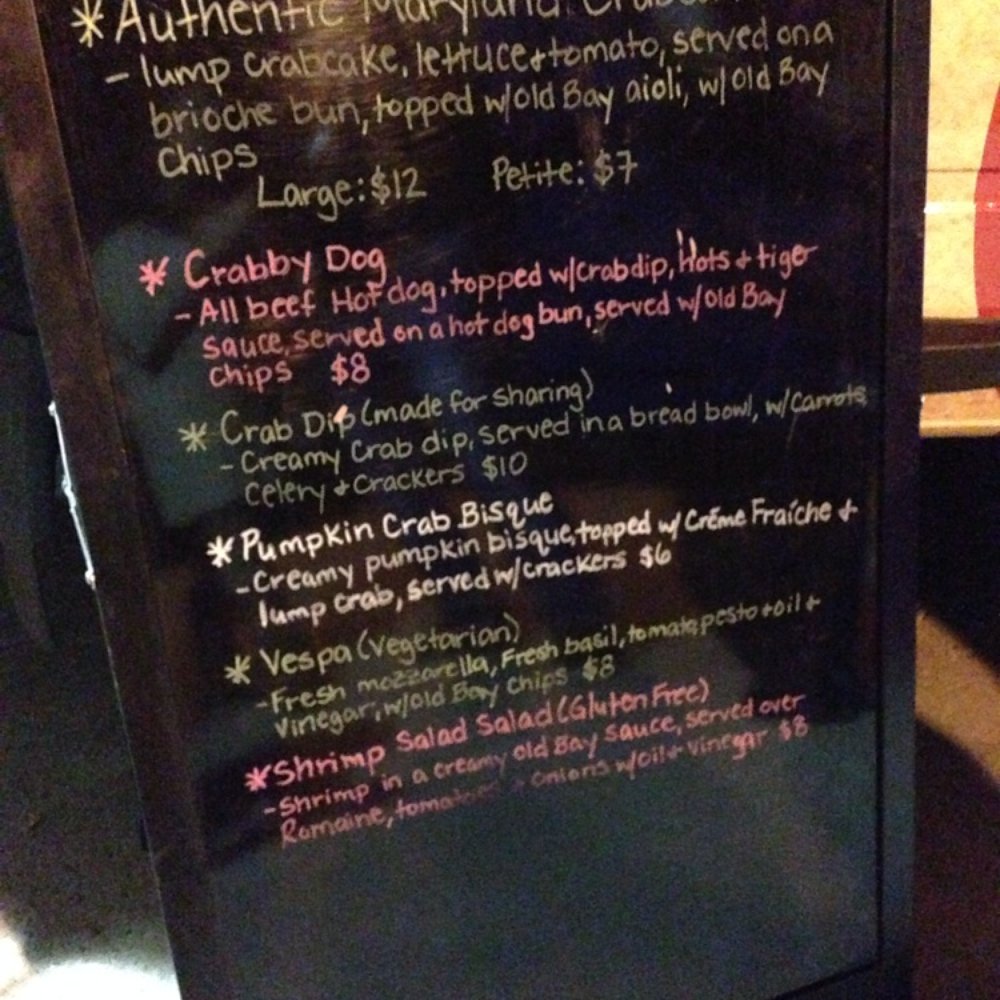 * Authentic Maryland
- lump crabcake, lettuce + tomato, served on a
brioche bun, topped w/old Bay aioli, w/old Bay
Chips
Large: $12 Petite: $7
* Crabby Dog
- All beef Hot dog, topped w/crab dip, Hots + tiger
sauce, served on a hot dog bun, served w/old Bay
Chips $8
* Crab Dip (made for sharing)
- Creamy Crab dip, served in a bread bowl, w/Carrots,
Celery + Crackers $10
* Pumpkin Crab Bisque
- Creamy pumpkin bisque, topped w/ Créme Fraíche +
lump crab, served w/crackers $6
* Vespa (Vegetarian)
- Fresh mozzarella, Fresh basil, tomato, pesto + oil +
Vinegar, w/old Bay Chips $8
* Shrimp Salad Salad (Gluten Free)
- Shrimp in a creamy old Bay sauce, served over
Romaine, tomatoes + onions w/oil + vinegar $8